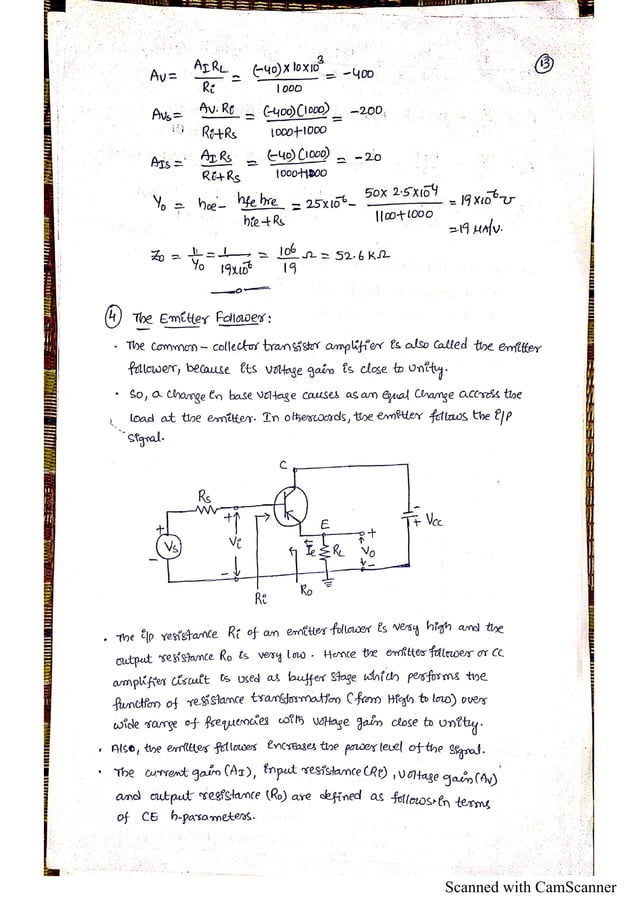 13
Av = AI RL / Ri = (-40) x 10x10³ / 1000 = -400
Avs = Av. Ri / Ri+Rs = (-400)(1000) / 1000+1000 = -200
AIs = AI Rs / Ri+Rs = (-40)(1000) / 1000+1000 = -20
Yo = hoe - hfe hre / hie + Rs = 25x10⁻⁶ - 50x 2.5x10⁻⁴ / 1100+1000 = 19x10⁻⁶ ℧
= 19 μA/V.
Zo = 1 / Yo = 1 / 19x10⁻⁶ = 10⁶ / 19 Ω = 52.6 KΩ
④ The Emitter Follower:
· The common - collector transistor amplifier is also called the emitter
follower, because its voltage gain is close to unity.
· So, a change in base voltage causes as an equal change accross the
load at the emitter. In otherwords, the emitter follows the i/p
signal.
C
Rs
E
+
- 
+ Vcc
+
Vs
-
+
Vi
-
Ie
RL
+
Vo
-
Ri
Ro
· The i/p resistance Ri of an emitter follower is very high and the
output resistance Ro is very low. Hence the emitter follower or CC
amplifier circuit is used as buffer stage which performs the
function of resistance transformation (from High to low) over
wide range of frequencies with voltage gain close to unity.
· Also, the emitter follower increases the power level of the signal.
· The current gain (AI), input resistance (Ri), voltage gain (Av)
and output resistance (Ro) are defined as follows in terms
of CE h-parameters.
Scanned with CamScanner